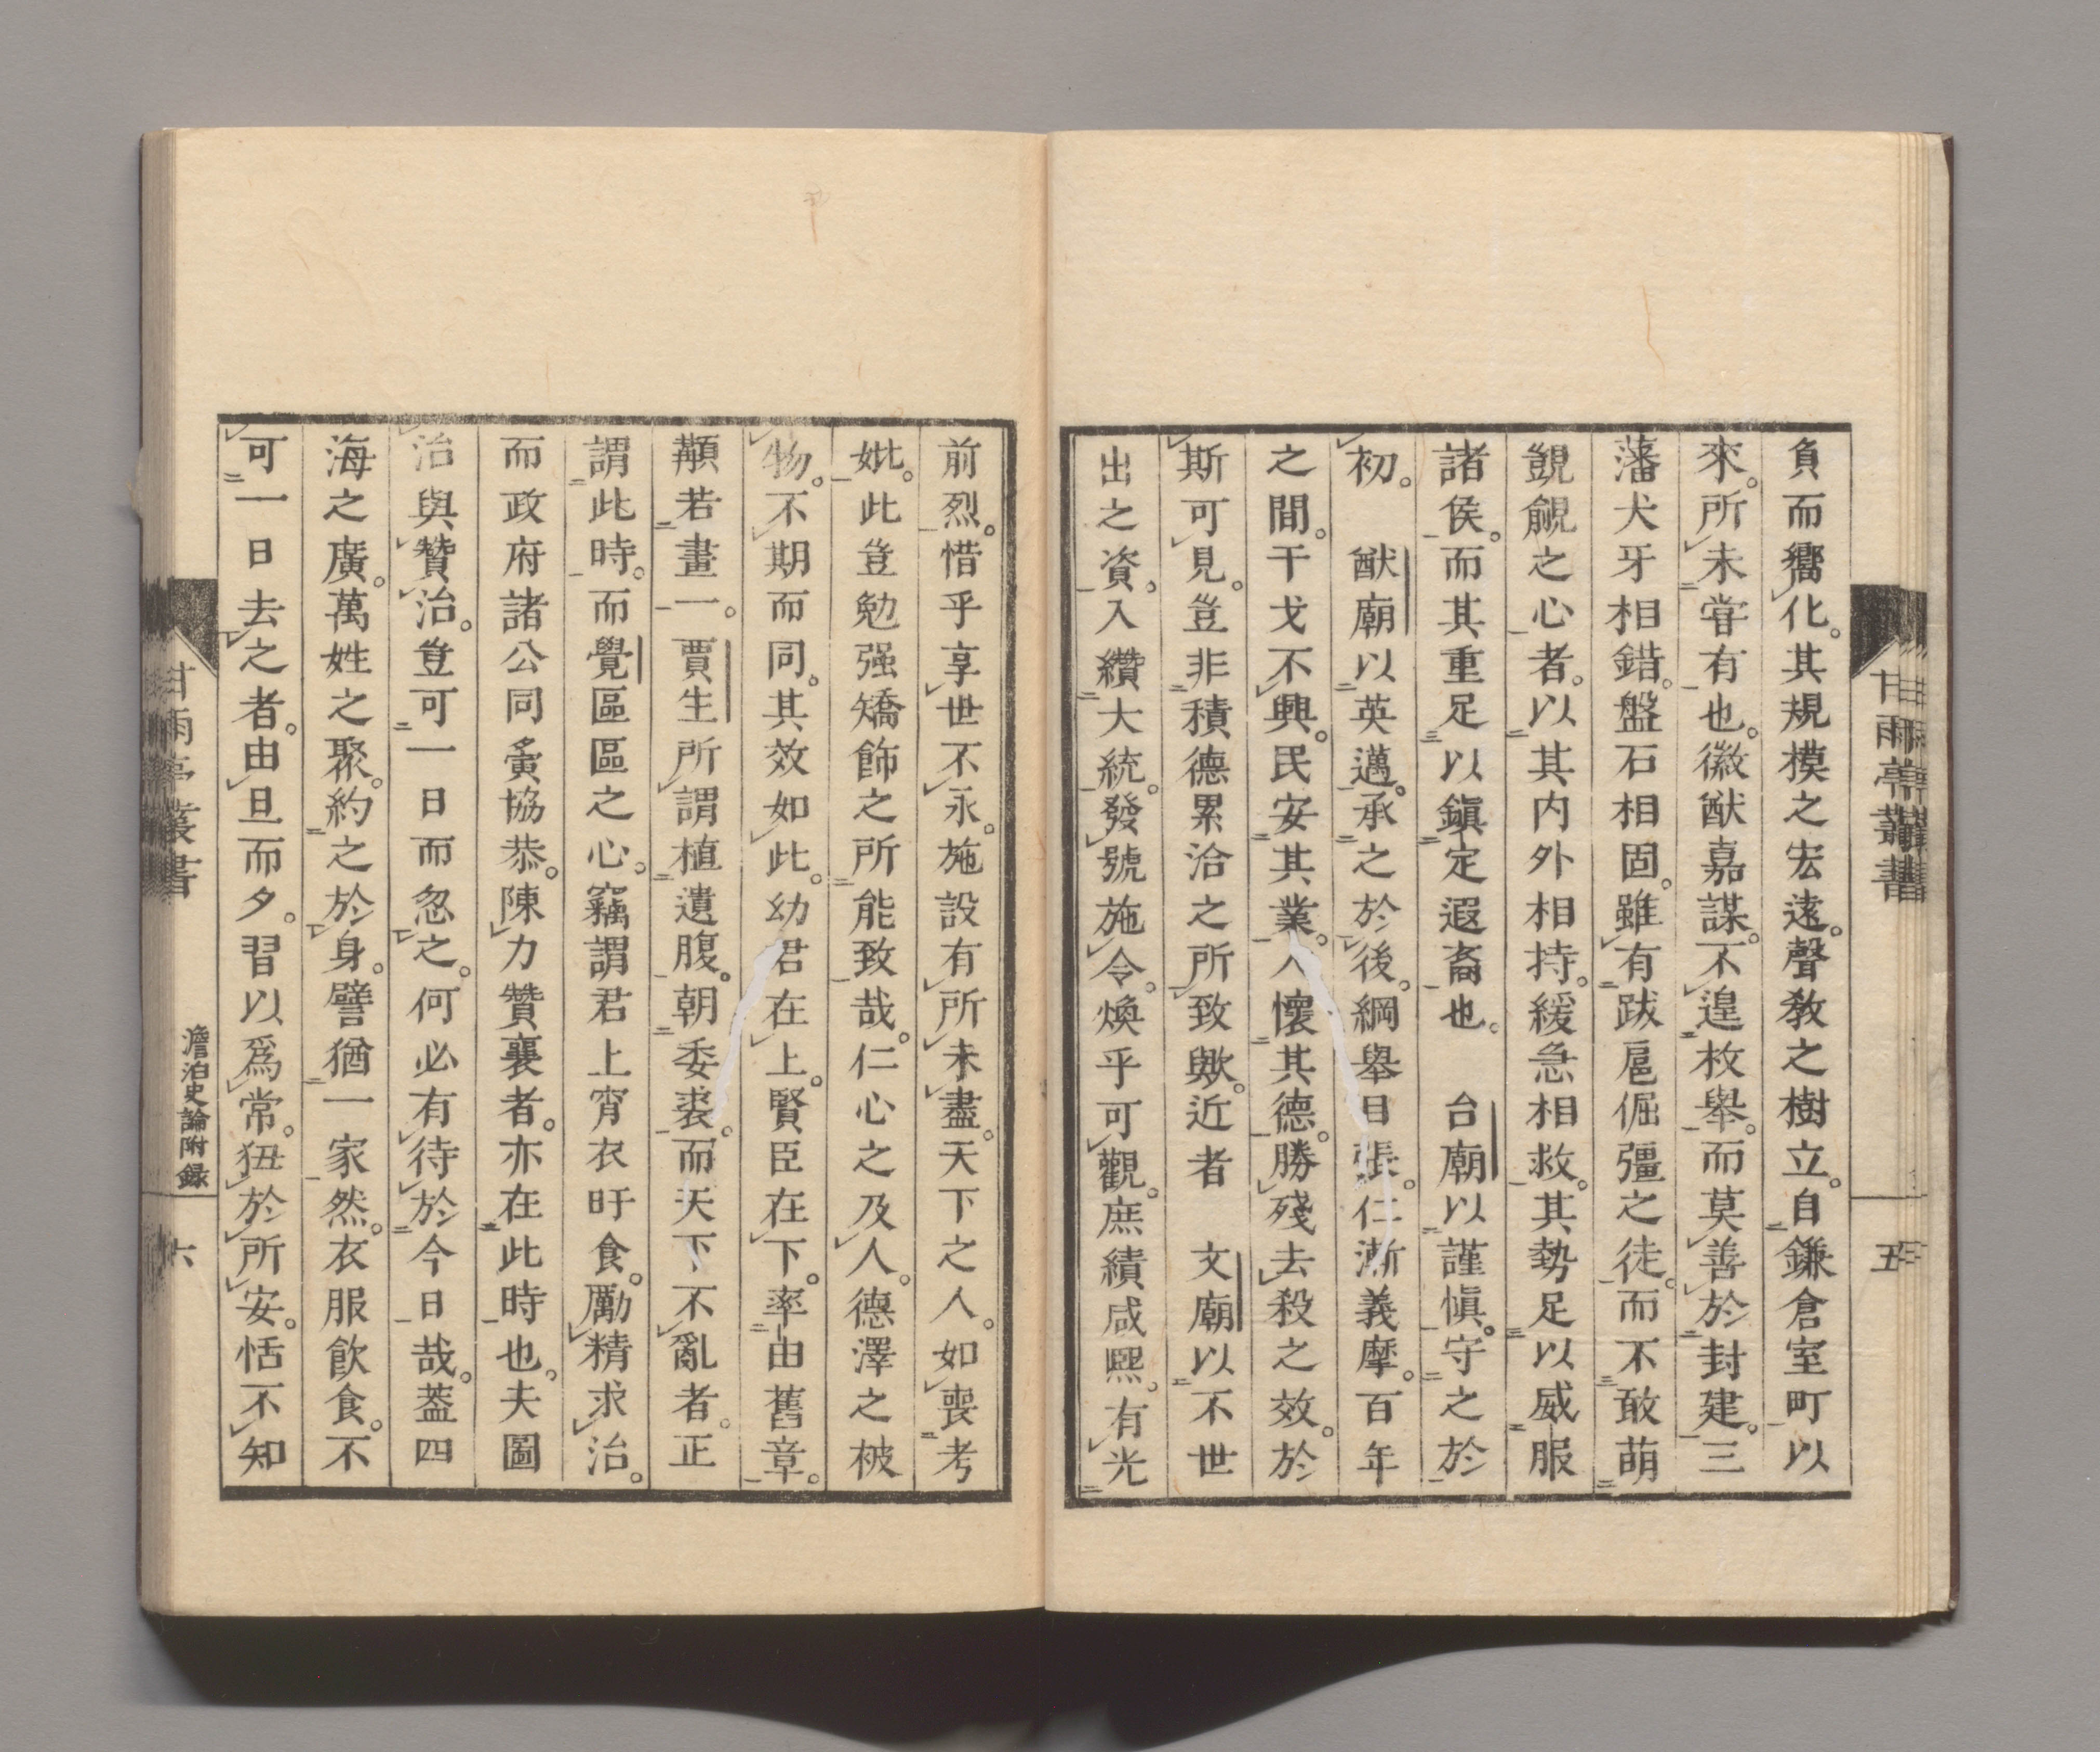 負而嚮化。其規模之宏遠。聲敎之樹立。自鎌倉室町以
來。所未甞有也。徽猷嘉謀。不遑枚舉。而莫善於封建。三
藩犬牙相錯。盤石相固。雖有跋扈倔彊之徒。而不敢萌
覬覦之心者。以其内外相持。緩急相救。其勢足以威服
諸侯。而其重足以鎭定遐裔也。　台廟以謹愼。守之於
初。　猷廟以英邁。承之於後。綱舉目張。仁漸義摩。百年
之間。干戈不興。民安其業。人懷其德。勝殘去殺之效。於
斯可見。豈非積德累洽之所致歟。近者　文廟以不世
出之資。入纘大統。發號施令。煥乎可觀。庶績咸熙。有光
甘雨亭叢書
五
前烈。惜乎享世不永。施設有所未盡。天下之人。如喪考
妣。此豈勉强矯飾之所能致哉。仁心之及人。德澤之被
物。不期而同。其效如此。幼君在上。賢臣在下。率由舊章。
顜若畫一。賈生所謂植遺腹。朝委裘。而天下不亂者。正
謂此時。而覺區區之心。竊謂君上宵衣旰食。勵精求治。
而政府諸公同寅協恭。陳力贊襄者。亦在此時也。夫圖
治與贊治。豈可一日而忽之。何必有待於今日哉。葢四
海之廣。萬姓之聚。約之於身。譬猶一家然。衣服飲食。不
可一日去之者。由旦而夕。習以爲常。狃於所安。恬不知
甘雨亭叢書
澹泊史論附録
六